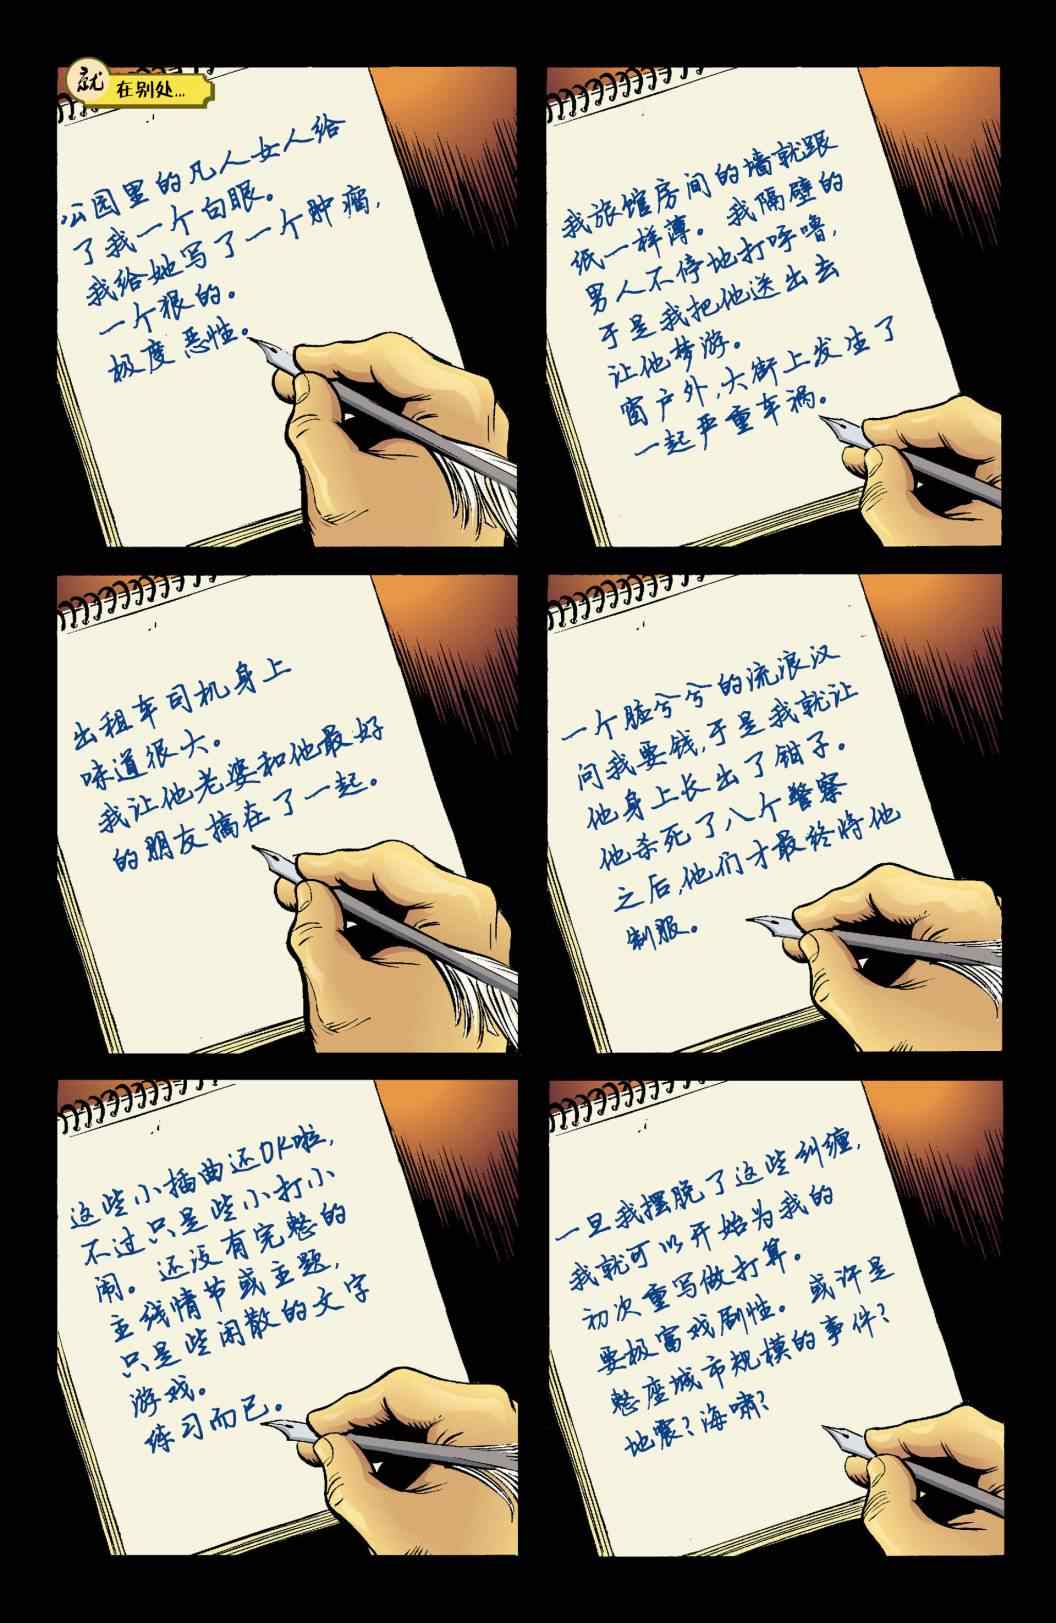 就在别处...
公园里的凡人女人给
了我一个白眼。
我给她写了一个肿瘤，
一个狠的。
极度恶性。
我旅馆房间的墙就跟
纸一样薄。 我隔壁的
男人不停地打呼噜，
于是我把他送出去
让他梦游。
窗户外，大街上发生了
一起严重车祸。
出租车司机身上
味道很大。
我让他老婆和他最好
的朋友搞在了一起。
一个脏兮兮的流浪汉
问我要钱，于是我就让
他身上长出了钳子。
他杀死了八个警察
之后，他们才最终将他
制服。
这些小插曲还OK啦，
不过只是些小打小
闹。 还没有完整的
主线情节或主题，
只是些闲散的文字
游戏。
练习而已。
一旦我摆脱了这些纠缠，
我就可以开始为我的
初次重写做打算。
要极富戏剧性。 或许是
整座城市规模的事件？
地震？海啸？